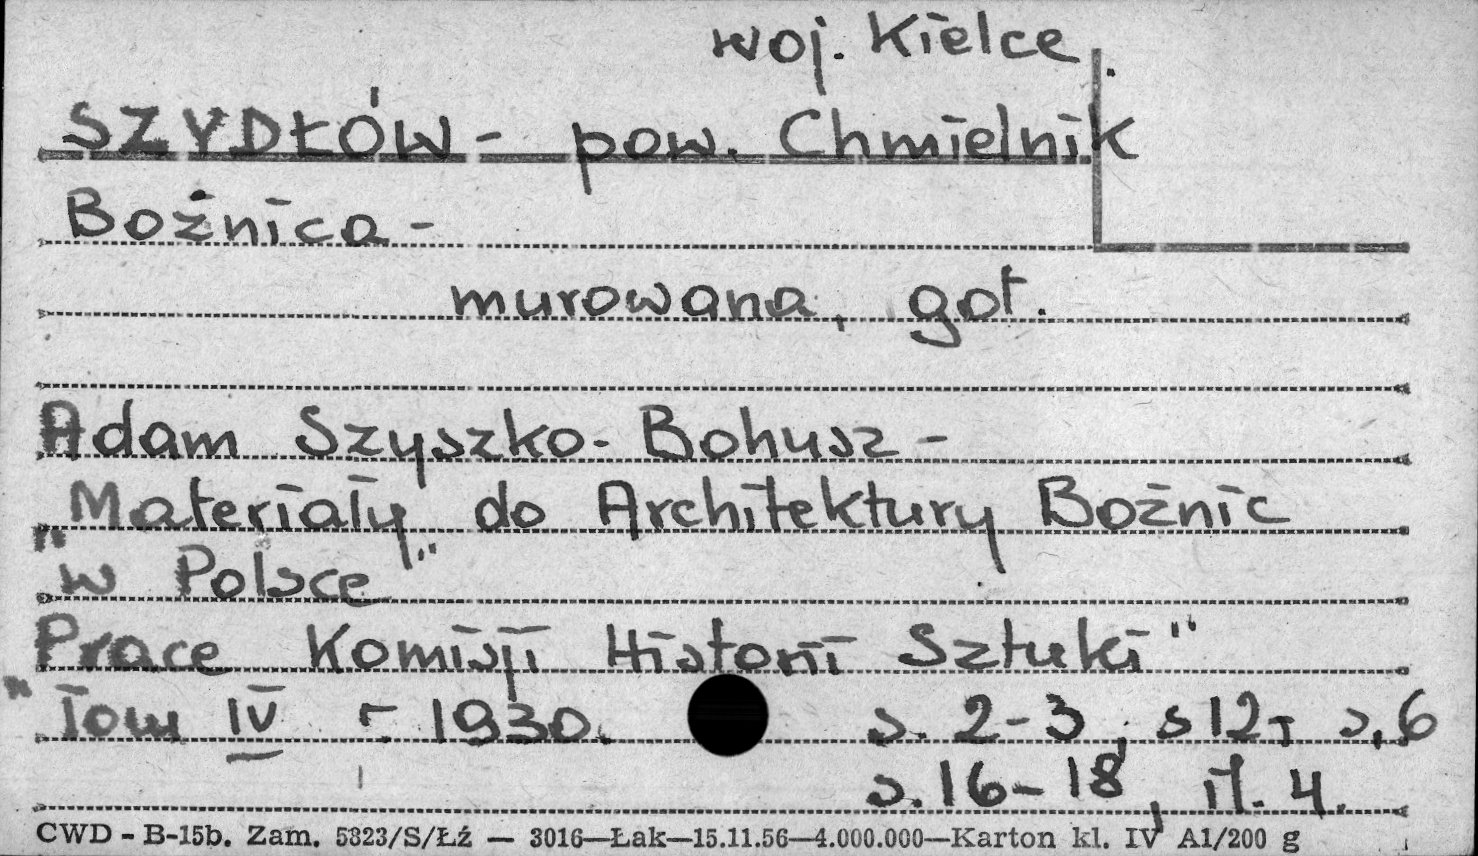 woj. Kielce.
SZYDŁÓW - pow. Chmielnik
Bożnica -
murowana, got.
Adam Szyszko-Bohusz -
"Materiały do Architektury Bożnic
w Polsce"
"Prace Komisji Historii Sztuki"
Tom IV r 1930. s. 2-3, s 12, s. 6
s. 16-18, il. 4.
CWD - B-15b. Zam. 5823/S/Łź — 3016—Łak—15.11.56—4.000.000—Karton kl. IV A1/200 g